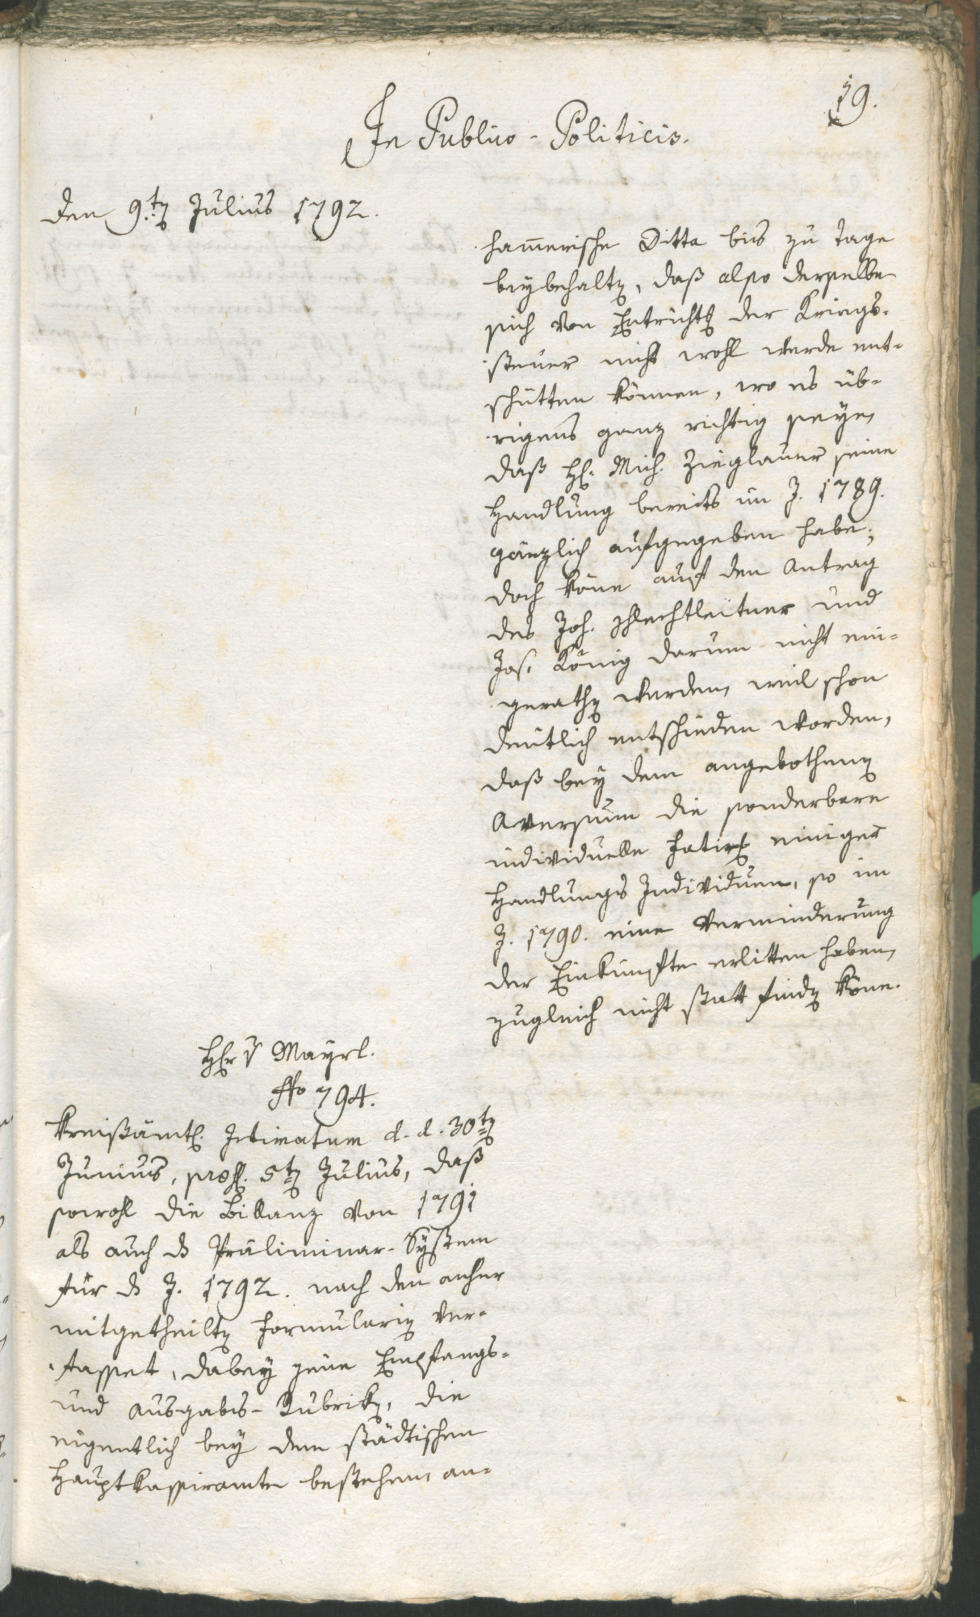 19.
In Publico-Politicis.
den 9.ten Julius 1792.
hamerische Ditta bis zu tage
beybehalten, daß also derselbe
sich von Entrichtung der Kriegs-
steuer nicht wohl werde ent-
schütten können, wo es üb-
rigens ganz richtig seye,
daß H. Mich. Zieglauer seine
Handlung bereits im J. 1789.
gänzlich aufgegeben habe;
doch köne auf den Antrag
des Joh. Schlechtleitner und
Jos. König darum nicht ein-
gerathen werden, weil schon
deutlich entschieden worden,
daß bey dem angebothenen
Aversum die sonderbare
individuelle Fatirung einiger
Handlungs Individuen, so im
J. 1790. eine Verminderung
der Einkünfte erlitten haben,
zugleich nicht statt finden köne.
H. v Mayrl.
No 794.
Kreißämtl. Intimatum d. d. 30ten
Junius, præs. 5ten Julius, daß
sowohl die Bilanz von 1791
als auch das Präliminar-System
für das J. 1792. nach den anher
mitgetheilten Formularien ver-
fasset, dabey jene Empfangs-
und Ausgabs-Rubriken, die
eigentlich bey dem städtischen
Hauptkassieramte bestehen, an-